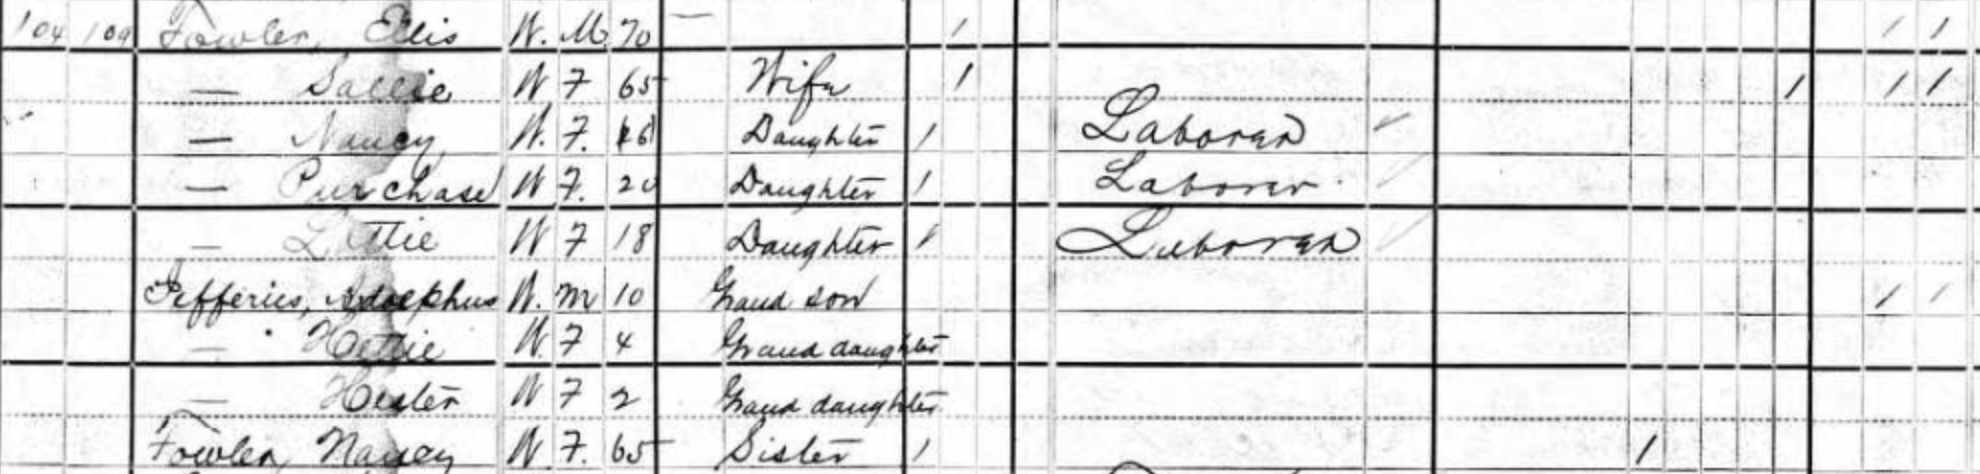 104 109 Fowler, Ellis W. M. 70 — 1 1 1
— Sallie W F 65 Wife 1 1 1 1
— Nancy W. F. Daughter 1 Laborer ✓
— Purchase W F. 20 Daughter 1 Laborer ✓
— Lettie W F 18 Daughter 1 Laborer ✓
Jefferies, Adolphus W. M 10 Grand son 1 1
— Hettie W. F 4 Grand daughter
— Hester W F 2 Grand daughter
Fowler, Nancy W F. 65 Sister 1 1